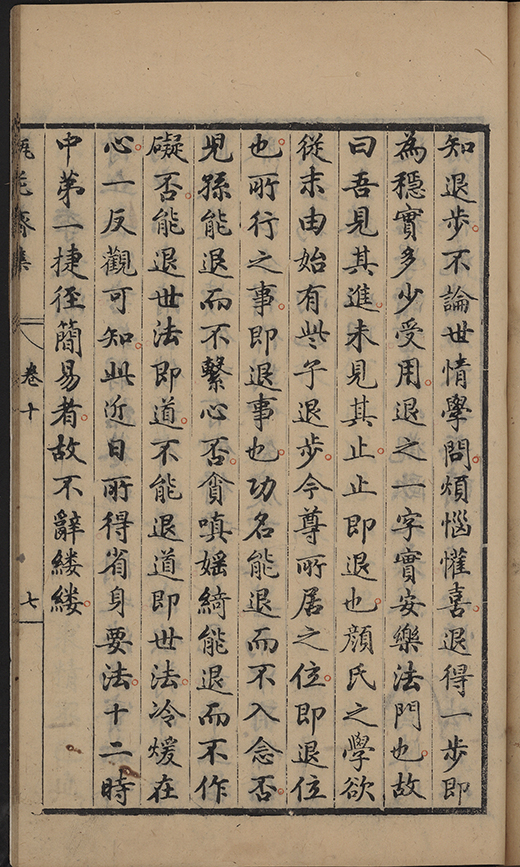 知退步不論世情學問煩惱懽喜退得一步即
為穩實多少受用退之一字實安樂法門也故
曰吾見其進未見其止止即退也顏氏之學欲
從末由始有些子退步今尊所居之位即退位
也所行之事即退事也功名能退而不入念否
兒孫能退而不繫心否貪嗔婬綺能退而不作
礙否能退世法即道不能退道即世法冷煖在
心一反觀可知此近日所得省身要法十二時
中第一捷徑簡易者故不辭縷縷
瓶花齋集 卷十 七